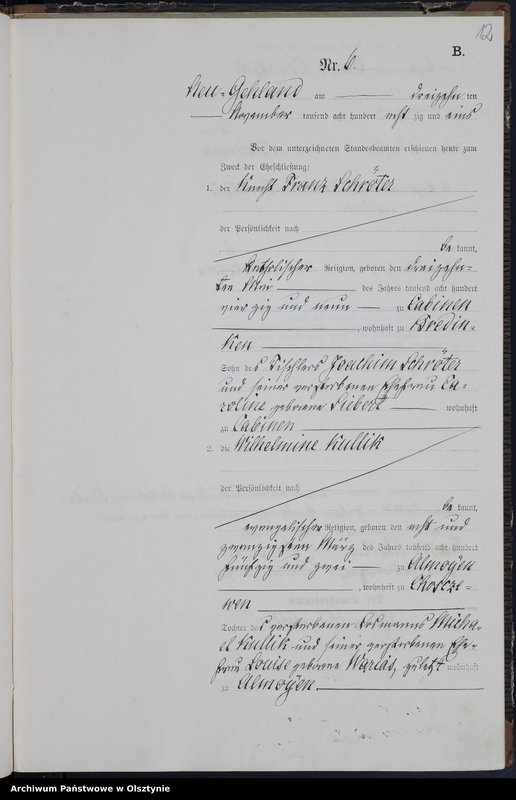 12
B.
Nr. 6.
Neu-Gehland am dreizehnten
November tausend acht hundert achtzig und eins
Vor dem unterzeichneten Standesbeamten erschienen heute zum
Zweck der Eheschließung:
1. der Knecht Franz Schröter
der Persönlichkeit nach
bekannt,
katholischer Religion, geboren den dreizehn-
ten Mai des Jahres tausend acht hundert
vierzig und neun zu Cabinen
, wohnhaft zu Bredin-
ken
Sohn des Tischlers Joachim Schröter
und seiner verstorbenen Ehefrau Ca-
roline geborene Siebert wohnhaft
zu Cabinen
2. die Wilhelmine Kullik
der Persönlichkeit nach
bekannt,
evangelischer Religion, geboren den acht und
zwanzigsten März des Jahres tausend acht hundert
fünfzig und zwei zu Almoyen
, wohnhaft zu Choscze-
wen
Tochter des verstorbenen Losmanns Micha-
el Kullik und seiner verstorbenen Ehe-
frau Louise geborene zuletzt wohnhaft
zu Almoyen
Archiwum Państwowe w Olsztynie